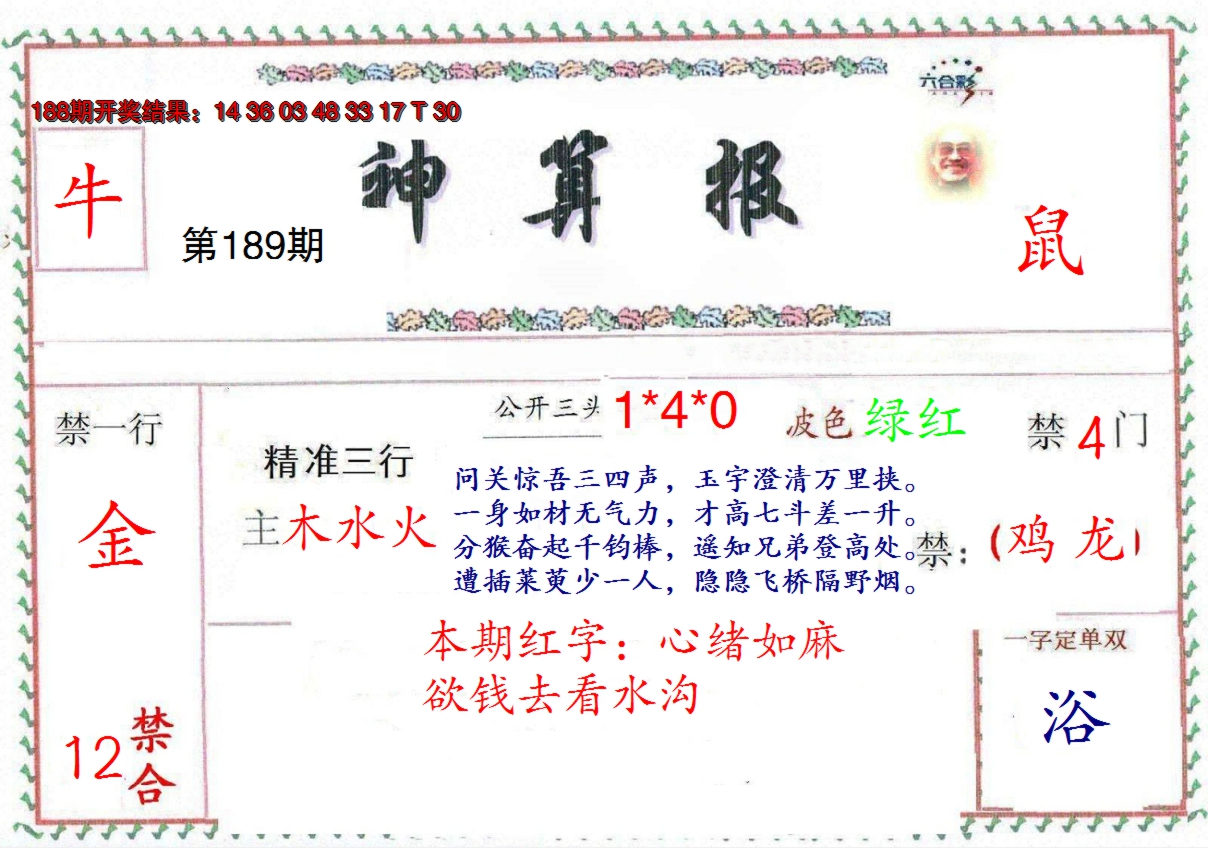 六合彩
188期开奖结果：14 36 03 48 33 17 T 30
神算报
牛
第189期
鼠
禁一行
金
12
禁合
精准三行
主木水火
公开三头 1*4*0
波色 绿红
禁4门
问关惊吾三四声，玉宇澄清万里挟。
一身如材无气力，才高七斗差一升。
分猴奋起千钧棒，遥知兄弟登高处。
遭插菜萸少一人，隐隐飞桥隔野烟。
禁：（鸡 龙）
本期红字：心绪如麻
欲钱去看水沟
一字定单双
浴